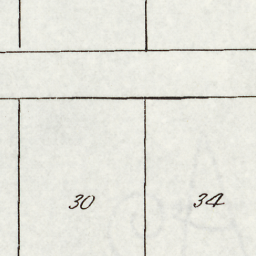 30 34